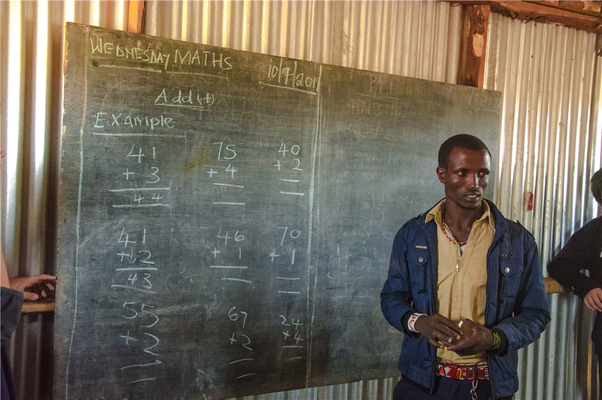 WEDNESDAY MATHS 10/9/2019
Add (+)
Example
41 75 40
+ 3 + 4 + 2
44
41 46 70
+ 2 + 1 + 1
43
55 67 24
+ 2 + 2 + 4